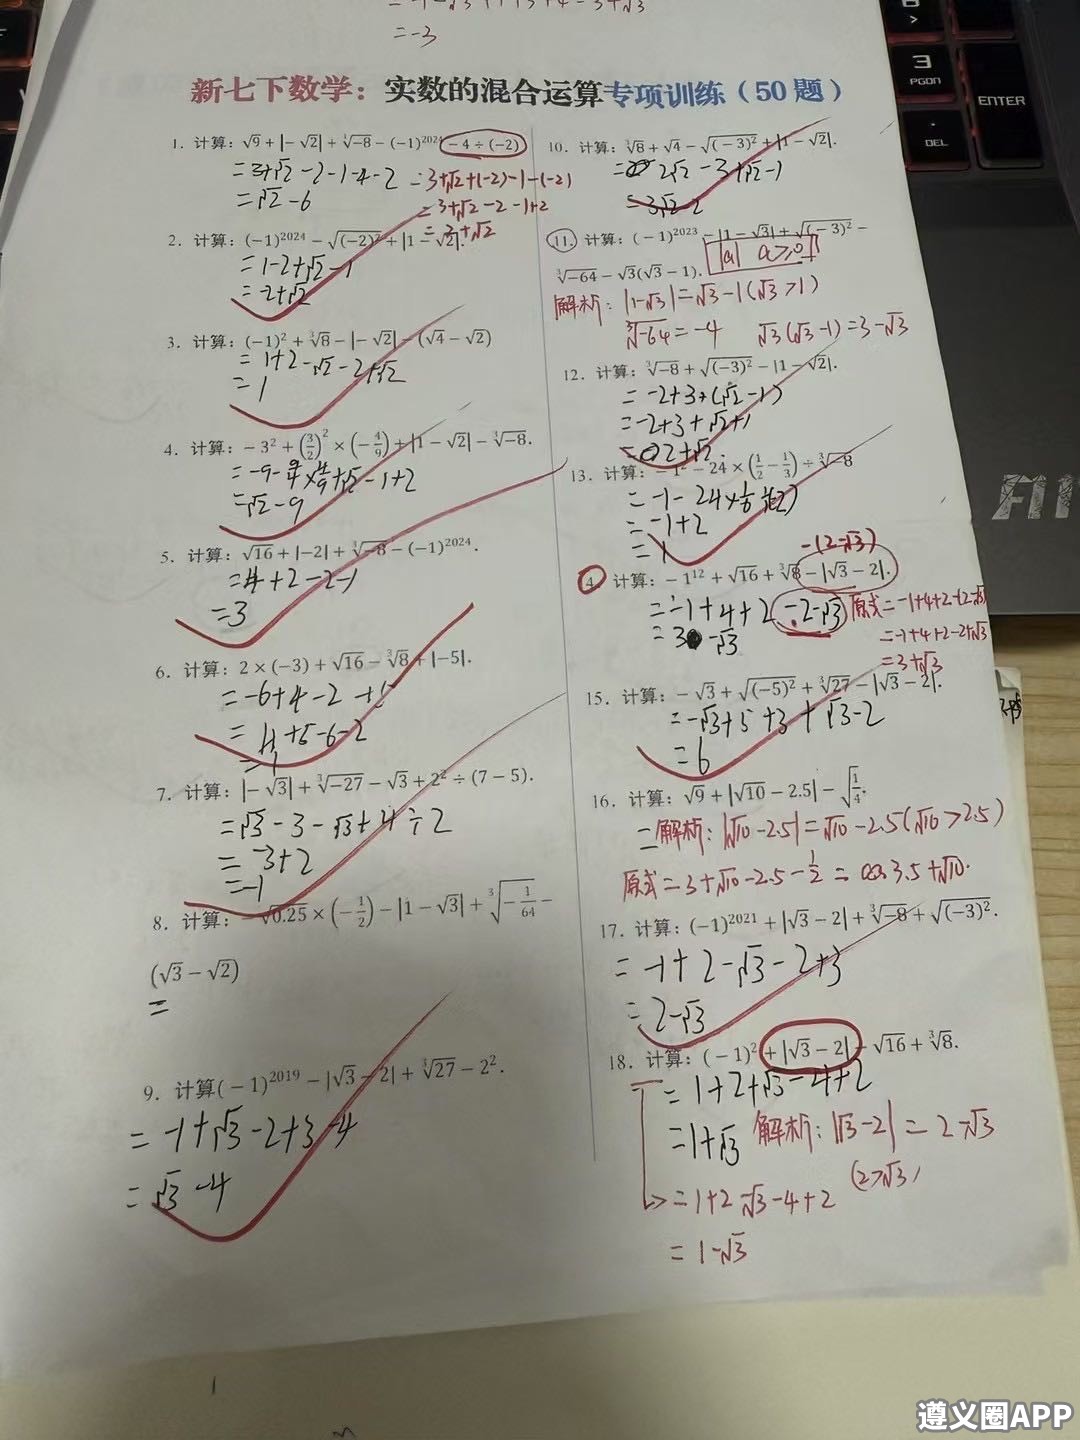 =-3
新七下数学：实数的混合运算专项训练（50题）
1. 计算：√9+|-√2|+∛-8-(-1)²⁰²⁴-4÷(-2)
=3+√2-2-1-4-2
=√2-6
=3+√2+(-2)-1-(-2)
=3+√2-2-1+2
=3+√2
2. 计算：(-1)²⁰²⁴-√(-2)²+|1-√2|.
=1-2+√2-1
=-2+√2
3. 计算：(-1)²+∛8-|-√2|-(√4-√2)
=1+2-√2-2+√2
=1
4. 计算：-3²+(3/2)²×(-4/9)+|1-√2|-∛-8.
=-9-9/4×4/9+√2-1+2
=√2-9
5. 计算：√16+|-2|+∛-8-(-1)²⁰²⁴.
=4+2-2-1
=3
6. 计算：2×(-3)+√16-∛8+|-5|.
=-6+4-2+5
=4+5-6-2
=1
7. 计算：|-√3|+∛-27-√3+2²÷(7-5).
=√3-3-√3+4÷2
=-3+2
=-1
8. 计算：-√0.25×(-1/2)-|1-√3|+∛(-1/64)-
(√3-√2)
=
9. 计算(-1)²⁰¹⁹-|√3-2|+∛27-2².
=-1+√3-2+3-4
=√3-4
10. 计算：∛8+√4-√(-3)²+|1-√2|.
2√2-3+√2-1
=3√2-2
11. 计算：(-1)²⁰²³-|1-√3|+√(-3)²-
|a| a≥0
∛-64-√3(√3-1).
解析：|1-√3|=√3-1(√3>1)
∛-64=-4 √3(√3-1)=3-√3
12. 计算：∛-8+√(-3)²-|1-√2|.
=-2+3+(√2-1)
=-2+3+√2+1
=2+√2.
13. 计算：-1²-24×(1/2-1/3)÷∛-8
=-1-24×1/6÷(-2)
=-1+2
=1
4. 计算：-1¹²+√16+∛8-|√3-2|.
-(2-√3)
=-1+4+2-2-√3
=3-√3
原式=-1+4+2-(2-√3)
=-1+4+2-2+√3
=3+√3
15. 计算：-√3+√(-5)²+∛27-|√3-2|.
=-√3+5+3+√3-2
=6
16. 计算：√9+|√10-2.5|-√(1/4).
=解析：|√10-2.5|=√10-2.5(√10>2.5)
原式=3+√10-2.5-1/2=3.5+√10.
17. 计算：(-1)²⁰²¹+|√3-2|+∛-8+√(-3)².
=-1+2-√3-2+3
=2-√3
18. 计算：(-1)²+|√3-2|-√16+∛8.
=1+2+√3-4+2
=1+√3
解析：|√3-2|=2-√3
(2>√3)
=1+2-√3-4+2
=1-√3
3
PGDN
ENTER
DEL
遵义圈APP